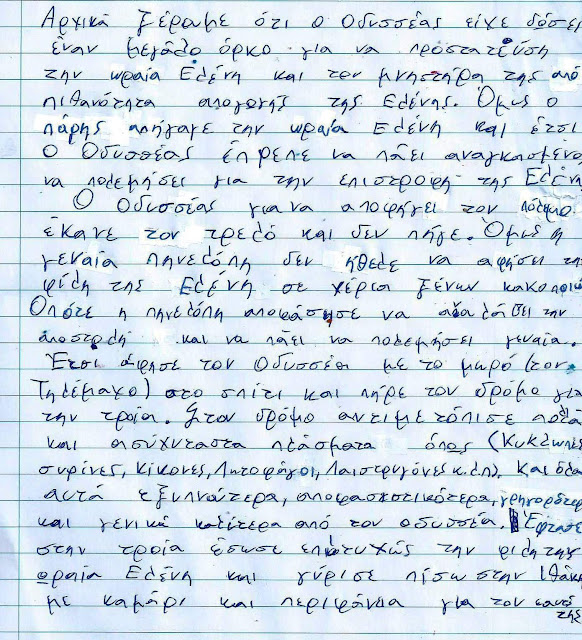 Αρχικά ξέραμε ότι ο Οδυσσέας είχε δόσει
έναν μεγάλο όρκο για να προστατεύση
την ωραία Ελένη και τον μνηστήρα της από
πιθανότητα απαγωγής της Ελένης. Όμως ο
πάρης απήγαγε την ωραία Ελένη και έτσι
ο Οδυσσέας έπρεπε να πάει αναγκασμένο
να πολεμήσει για την επιστροφή της Ελένη
Ο Οδυσσέας για να αποφήγει τον πόλεμο
έκανε τον τρελό και δεν πήγε. Όμως η
γεναία πηνελόπη δεν ήθελε να αφήσει τη
φίλη της Ελένη σε χέρια ξένων κακοποιώ
Οπότε η πηνελόπη αποφάσησε να αναλάβει την
αποστολή και να πάει να πολεμήσει γεναία.
Έτσι άφησε τον Οδυσσέα με το μωρό (τον
Τηλέμαχο) στο σπίτι και πήρε τον δρόμο για
την τροία. Στον δρόμο αντιμετόπισε πολλά
και ασύχυταστα πλάσματα όπος (Κυκλωπες
συρίνες, Κίκονες, Λητοφάγοι, Λαιστρυγόνες κ.λπ). Και όλα
αυτά εξυπνώτερα, αποφασηστικότερα, γρηγορότερ
και γενικά καλίτερα από τον οδυσσέα. Έφτασε
στην τροία έσωσε επιτυχώς την φίλη της
ωραία Ελένη και γύρισε πίσω στην Ιθάκη
με καμάρι και περιφάνια για τον εαυτό
της